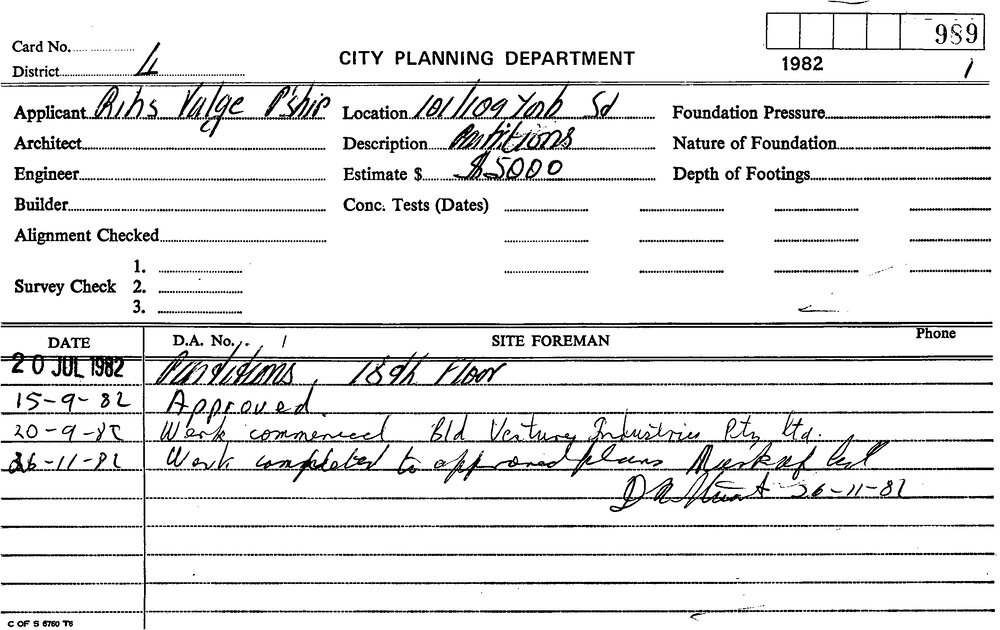 989
Card No.
CITY PLANNING DEPARTMENT
1982 1
District 4
Applicant Rihs Valge P'ship Location 101/109 York Sd Foundation Pressure
Architect Description Partitions Nature of Foundation
Engineer Estimate $ $5000 Depth of Footings
Builder Conc. Tests (Dates)
Alignment Checked
1.
Survey Check 2.
3.
DATE D.A. No. SITE FOREMAN Phone
20 JUL 1982 Partitions, 18th Floor
15-9-82 Approved.
20-9-82 Work commenced Bld Venture Industries Pty Ltd.
26-11-82 Work completed to approved plans
26-11-82
C OF S 6760 T6